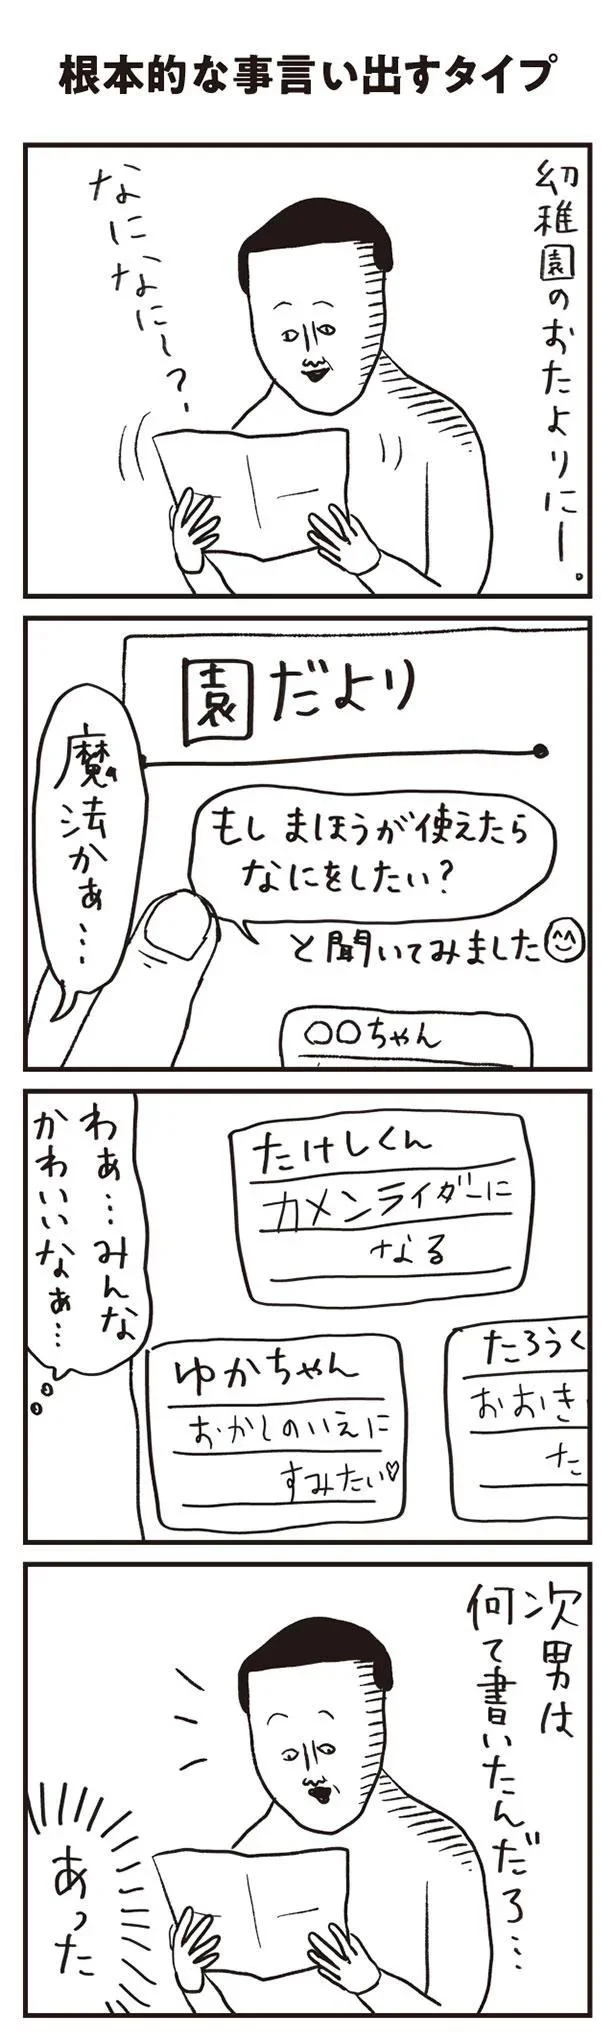 根本的な事言い出すタイプ
幼稚園のおたよりにー。
なになにー?
園だより
もしまほうが使えたら
なにをしたい?
と聞いてみました
魔法かぁ…
○○ちゃん
たけしくん
カメンライダーに
なる
わぁ…みんな
かわいいなぁ…
たろうく
おおき
た
ゆかちゃん
おかしのいえに
すみたい♡
次男は
何て書いたんだろ…
あった